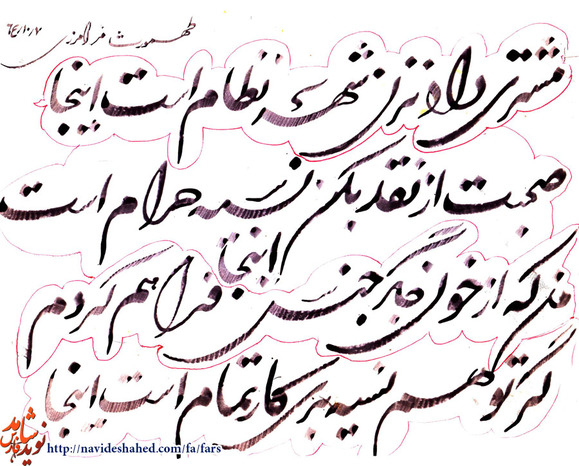 طهمورث فرامرزی ٦٤/١٠/٧
مشتری داد نزن شهر نظام است اینجا
صحبت از نقد بکن نسیه حرام است
اینجا
من که از خون جگر جنس فراهم کردم
گر تو هم نسیه بری کار تمام است اینجا
نوید شاهد
فارس
http://navideshahed.com/fa/fars